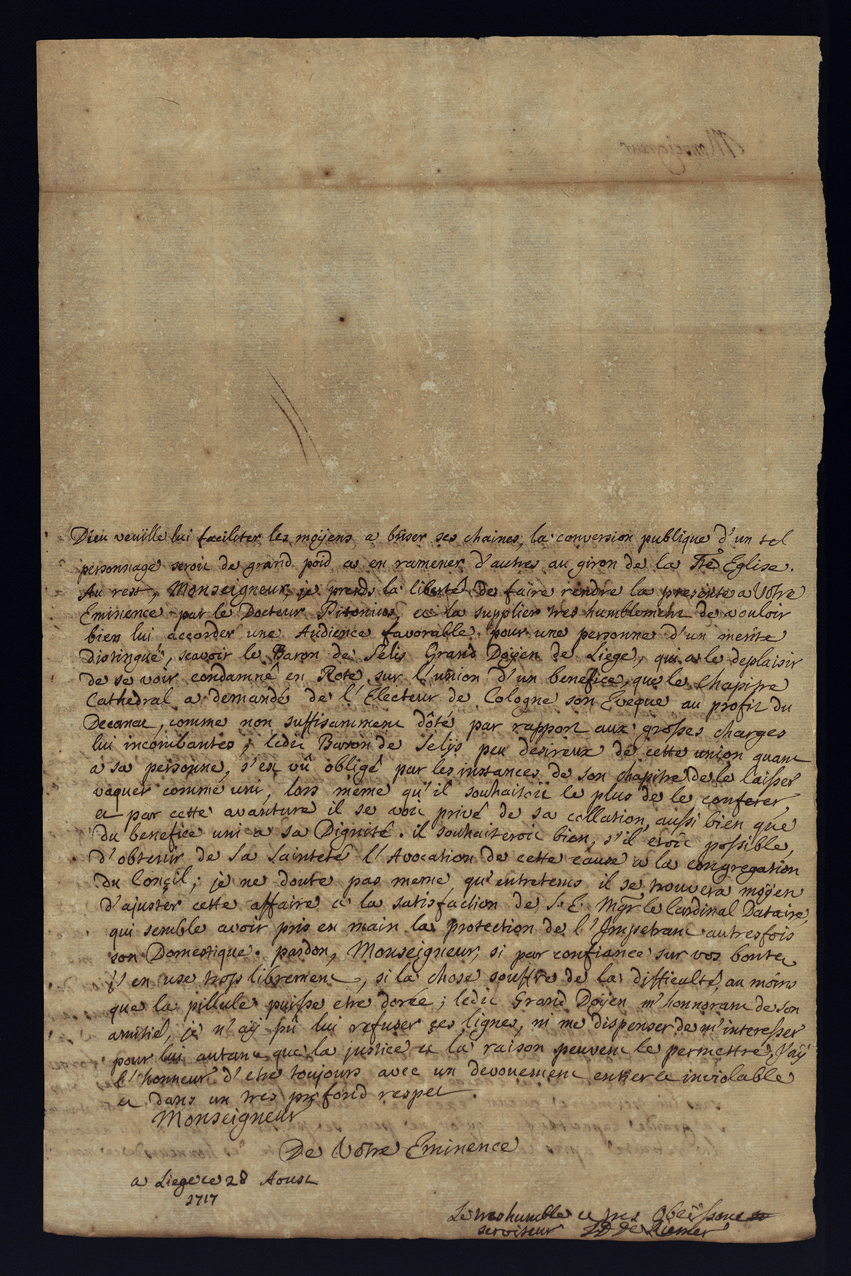 Dieu veüille lui faciliter les moÿens a briser ses chaines, la conversion publique d'un tel
personnage seroit de grand poid a en ramener d'autres au giron de la Ste Eglise.
Au rest, Monseigneur, je prends la liberté de faire rendre la presente a Vôtre
Eminence par le Docteur et la supplier tres humblement de vouloir
bien lui accorder une Audience favorable pour une personne d'un merite
distingué, scavoir le Baron de Selis Grand Doÿen de Liege, qui a le deplaisir
de se voir condamné en Rote sur l'union d'un benefice, que le Chapitre
Cathedral a demandé de l'Electeur de Cologne son Eveque au profit du
Decanat, comme non suffisamment dôté par rapport aux grosses charges
lui incombantes; ledit Baron de Selÿs peu desireux de cette union quant
a sa personne, s'en vû obligé par les instances de son chapitre de le laisser
vaquer comme uni, lors même qu'il souhaitoit le plus de le conferer,
et par cette avanture il se voit privé de sa collation, aussi bien que
du benefice uni a sa Dignité. il souhaiteroit bien, s'il etoit possible,
d'obtenir de Sa Sainteté l'Avocation de cette cause a la congregation
du Conçil; je ne doute pas meme qu'entretems il se trouvera moyen
d'ajuster cette affaire a la satisfaction de S. E. Mgr le Cardinal Dataire,
qui semble avoir pris en main la protection de l'Impetrant autresfois
son Domestique. pardon, Monseigneur, si par confiance sur vos bontés
j'en use trop librement, si la chose souffre de la difficulté, au moins
que la pillule puisse etre dorée; ledit Grand Doÿen m'honnorant de son
amitié, je n'aÿ pû lui refuser ces lignes, ni me dispenser de m'interesser
pour lui autant que la justice et la raison peuvent le permettre, j'aÿ
l'honneur d'etre toujours avec un devouement entier et inviolable
et dans un tres profond respet.
Monseigneur
De Vôtre Eminence
a Liege ce 28 Aoust
1717
Le tres humble et tres Obeissant
serviteur